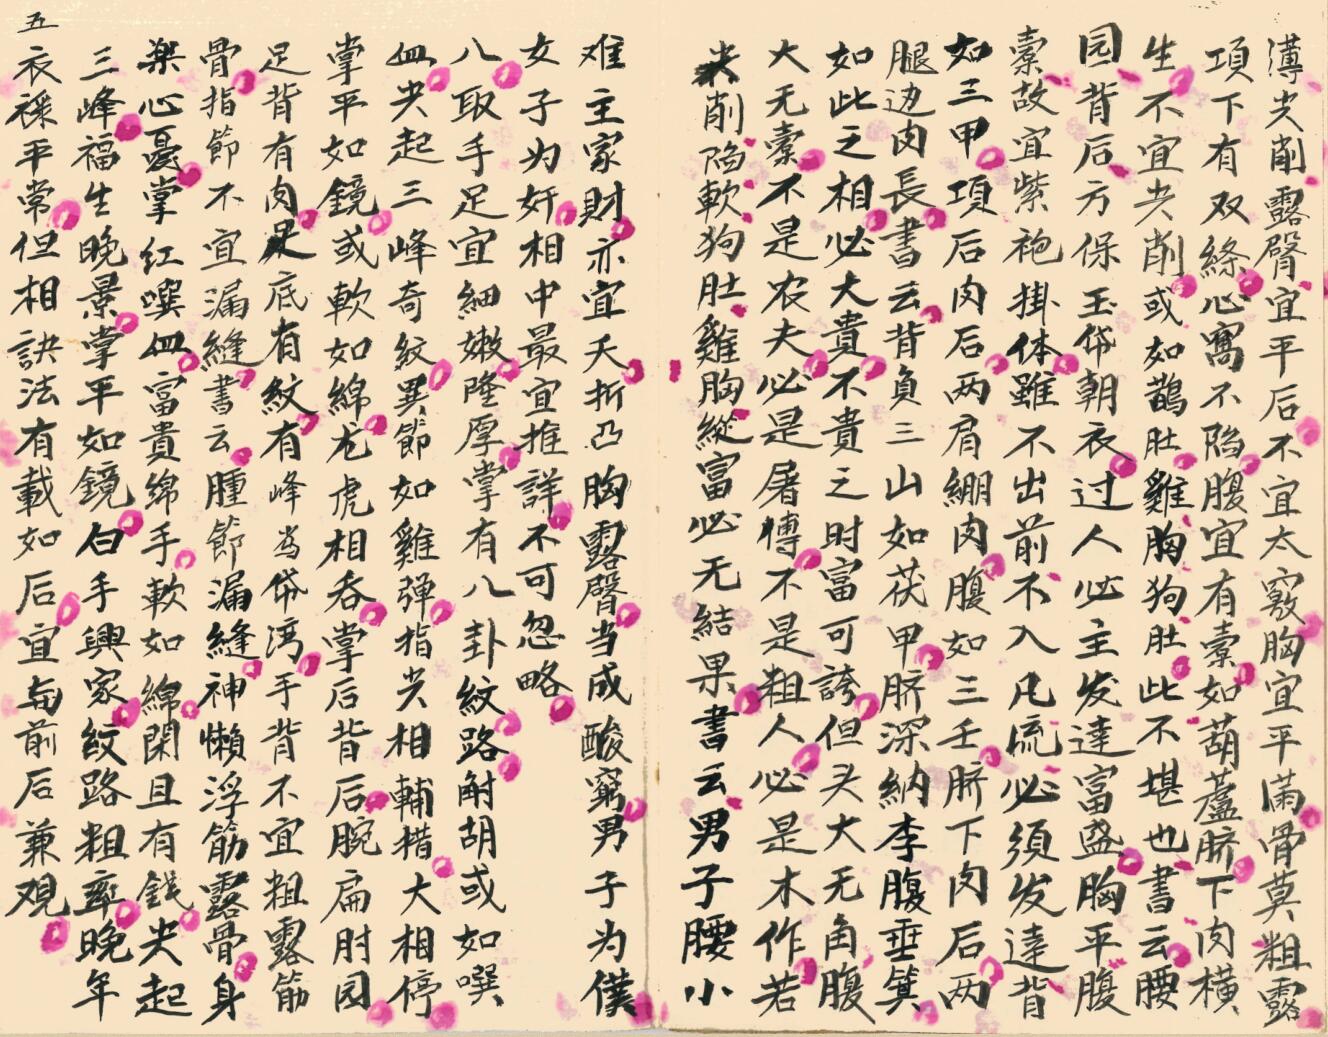 薄尖削露臀宜平后不宜太竅胸宜平滿骨莫粗露
項下有双絛心窩不陷腹宜有橐如葫蘆脐下肉橫
生不宜尖削或如鵲肚雞胸狗肚此不堪也書云腰
园背后方保玉帶朝衣过人必主发達富盛胸平腹
橐故宜紫袍掛体雖不出前不入凡流必须发達背
如三甲項后肉后两肩綳肉腹如三壬脐下肉后两
腿边肉長書云背負三山如茯甲脐深納李腹垂箕
如此之相必大貴不貴之时富可誇但头大无角腹
大无橐不是农夫必是屠慱不是粗人必是木作若
尖削陷軟狗肚雞胸縱富必无結果書云男子腰小
难主家財亦宜夭折凸胸露臀当成酸窮男子为僕
女子为奸相中最宜推詳不可忽略
八取手足宜細嫩隆厚掌有八卦紋路耐胡或如噀
血尖起三峰奇紋異節如雞弹指尖相輔揩大相停
掌平如鏡或軟如綿龙虎相吞掌后背后腕扁肘园
足背有肉足底有紋有峰為帶沔手背不宜粗露筋
骨指節不宜漏縫書云腫節漏縫神懶浮筋露骨身
樂心憂掌红噀血富貴绵手軟如綿閑且有錢尖起
三峰福生晚景掌平如鏡白手興家紋路粗率晚年
五
衣祿平常但相訣法有載如后宜与前后兼观